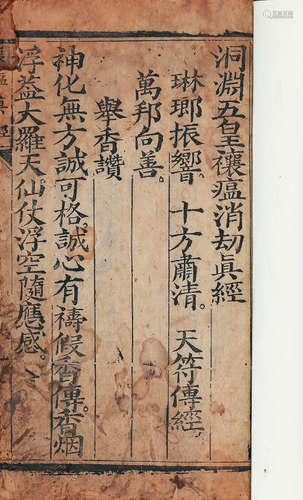 洞淵五皇禳瘟消劫眞經
琳瑯振響。十方肅清。天符傳經。
萬邦向善。
舉香讚
神化無方誠可格。誠心有禱假香傳。香烟
浮益大羅天。仙仗浮空隨應感。